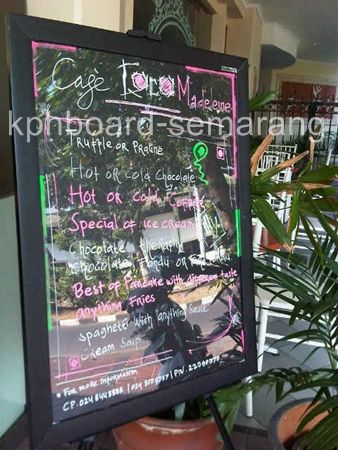 Cafe Toro Madeleine
kphboard-semarang
Truffle or Praline
Hot or Cold Chocolate
Hot or Cold Coffee
Special of Ice Cream
Chocolate Therapy
Chocolate Fondu or
Best of Pancake with different taste
anything Fries
Spaghetti with anything Sauce
Cream Soup
* For more information